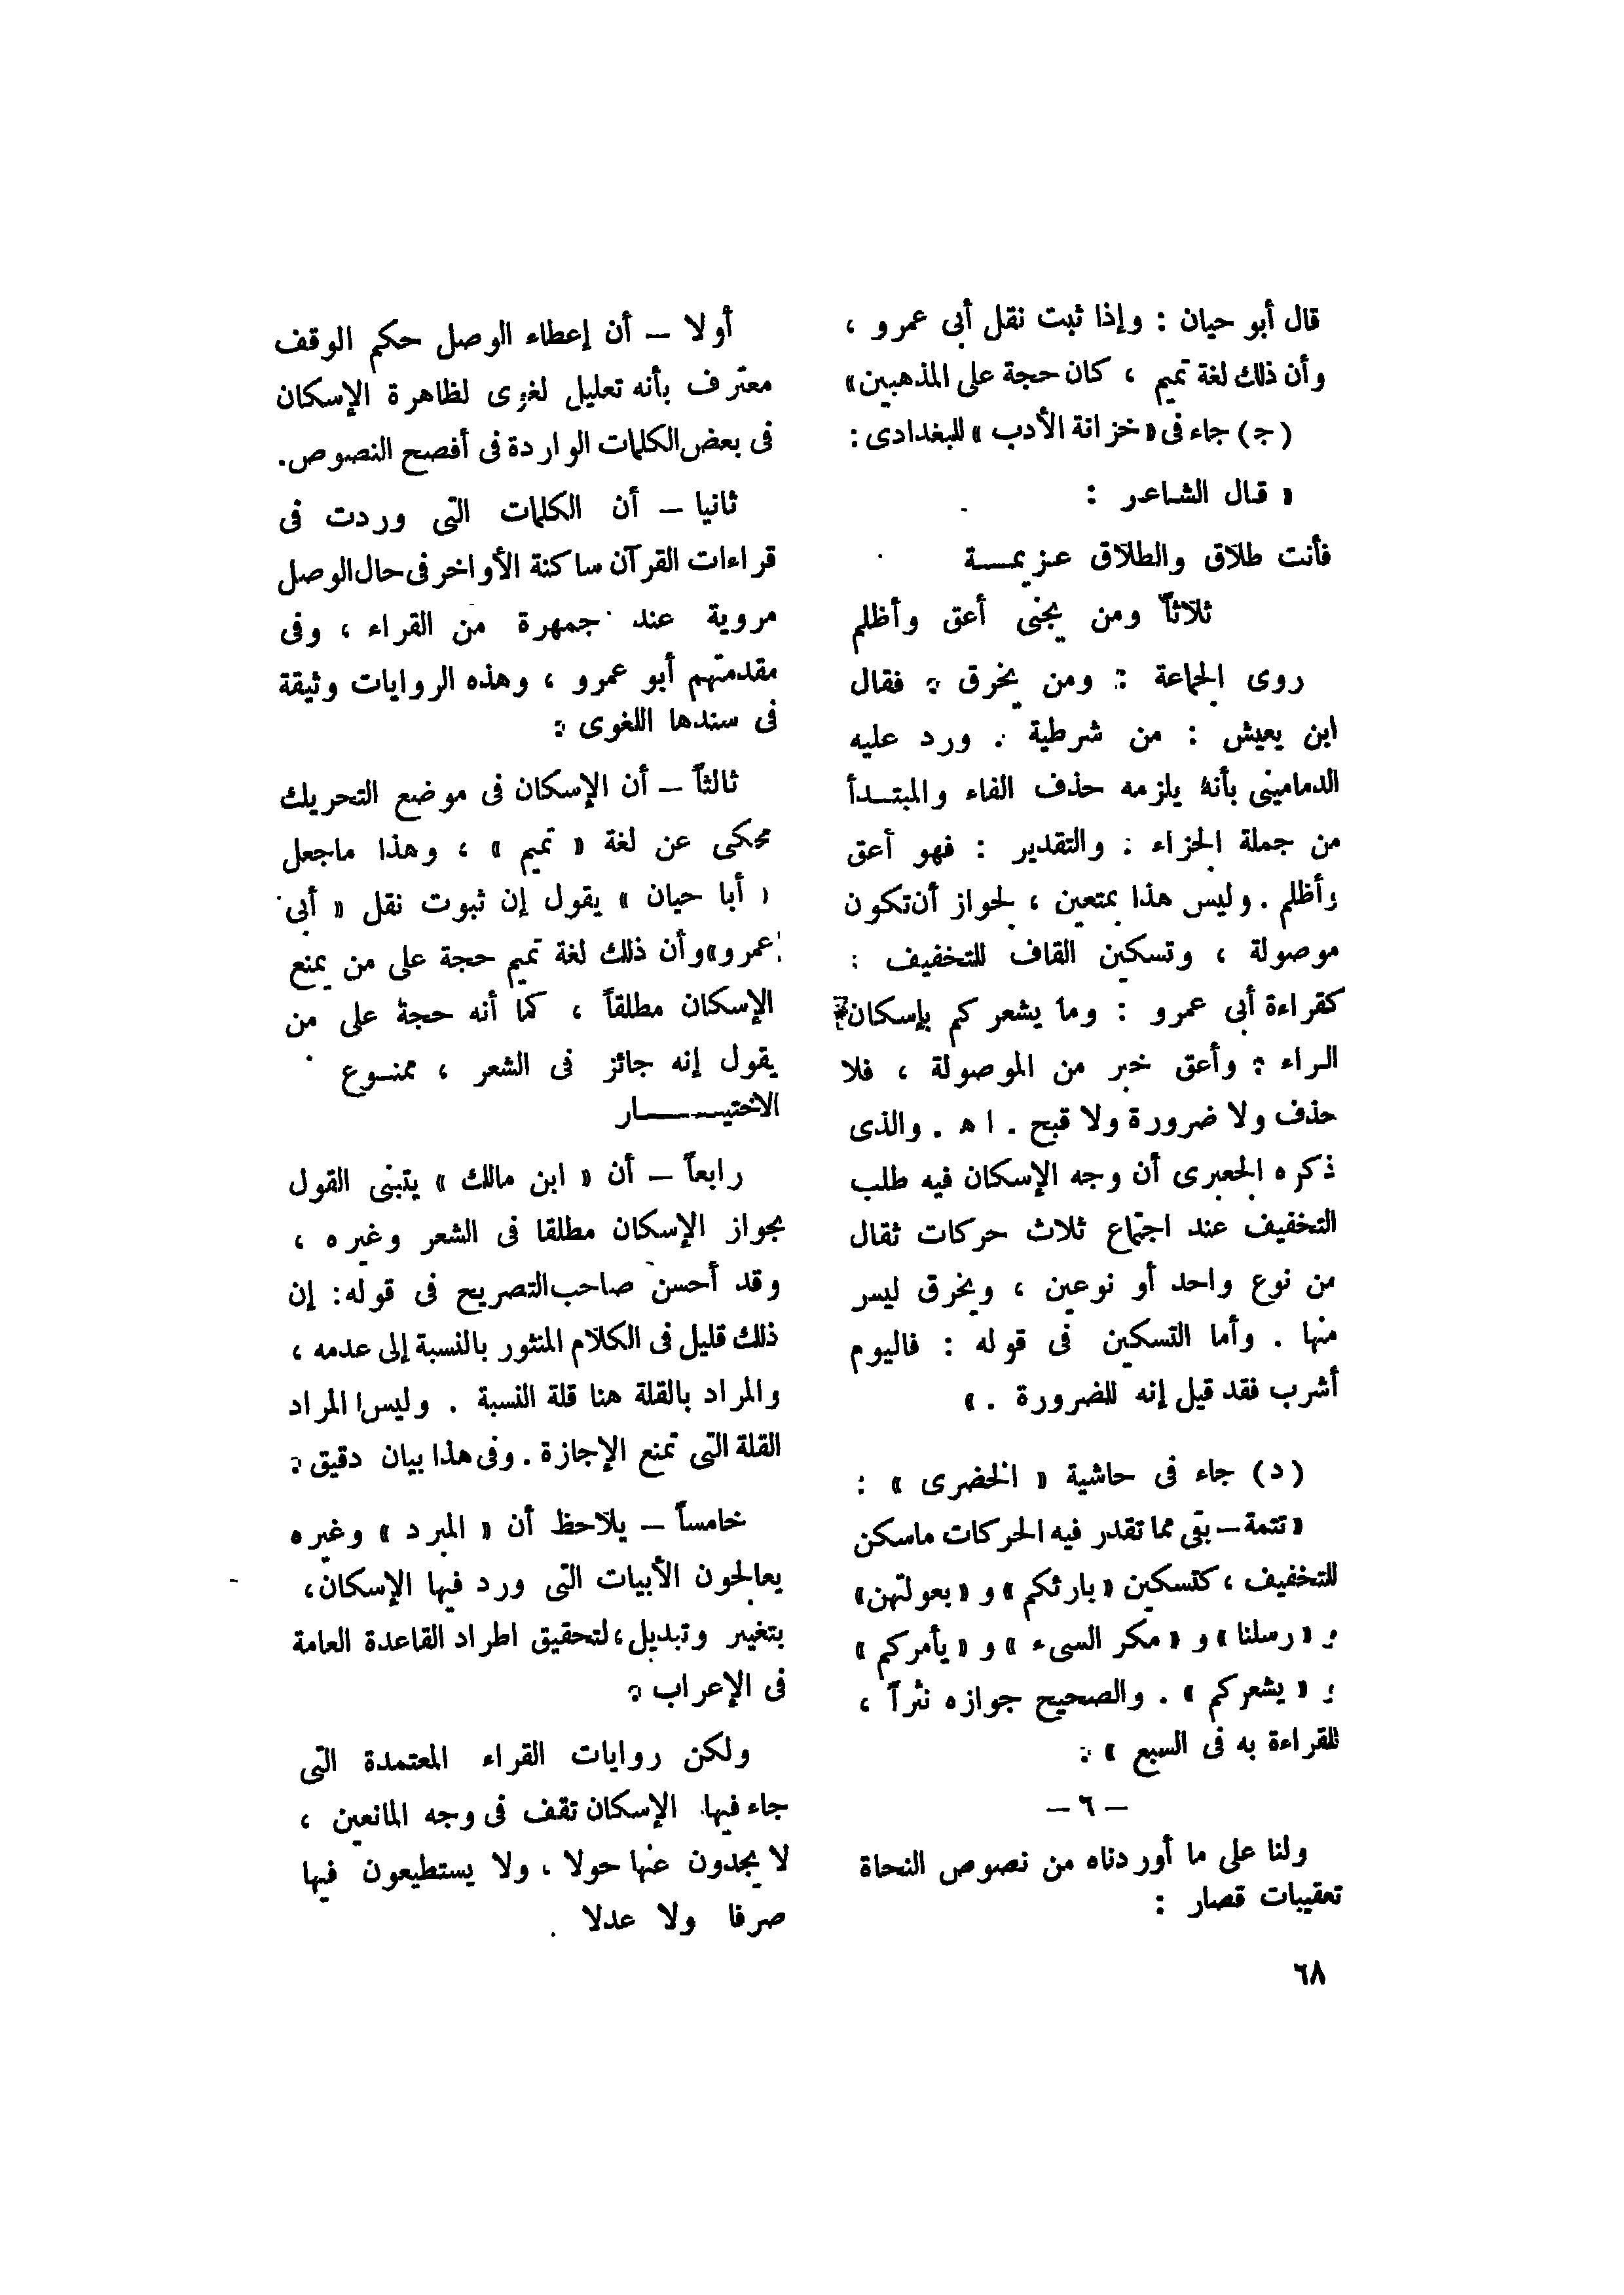 قال أبو حيان : وإذا ثبت نقل أبى عمرو ،
وأن ذلك لغة تميم ، كان حجة على المذهبين»
(ج) جاء فى «خزانة الأدب» للبغدادى :
« قال الشاعر :
فأنت طلاق والطلاق عزيمـــة
ثلاثاً ومن يجنى أعق وأظلم
روى الجماعة : ومن يخرق . فقال
ابن يعيش : من شرطية . ورد عليه
الدمامينى بأنه يلزمه حذف الفاء والمبتــدأ
من جملة الجزاء . والتقدير : فهو أعق
وأظلم . وليس هذا بمتعين ، لجواز أن تكون
موصولة ، وتسكين القاف للتخفيف :
كقراءة أبى عمرو : وما يشعركم بإسكان
الراء . وأعق خبر من الموصولة ، فلا
حذف ولا ضرورة ولا قبح . اه . والذى
ذكره الجعبرى أن وجه الإسكان فيه طلب
التخفيف عند اجتماع ثلاث حركات ثقال
من نوع واحد أو نوعين ، ويخرق ليس
منها . وأما التسكين فى قوله : فاليوم
أشرب فقد قيل إنه للضرورة . »
(د) جاء فى حاشية « الخضرى » :
« تتمة – بقى مما تقدر فيه الحركات ماسكن
للتخفيف ، كتسكين «بارئكم» و «بعولتهن»
و «رسلنا» و «مكر السىء» و «يأمركم»
و «يشعركم» . والصحيح جوازه نثراً ،
للقراءة به فى السبع » .
– ٦ –
ولنا على ما أوردناه من نصوص النحاة
تعقيبات قصار :
أولا – أن إعطاء الوصل حكم الوقف
معترف بأنه تعليل لغوى لظاهرة الإسكان
فى بعض الكلمات الواردة فى أفصح النصوص.
ثانيا – أن الكلمات التى وردت فى
قراءات القرآن ساكنة الأواخر فى حال الوصل
مروية عند جمهرة من القراء ، وفى
مقدمتهم أبو عمرو ، وهذه الروايات وثيقة
فى سندها اللغوى .
ثالثاً – أن الإسكان فى موضع التحريك
محكى عن لغة « تميم » ، وهذا ماجعل
« أبا حيان » يقول إن ثبوت نقل « أبى
عمرو» وأن ذلك لغة تميم حجة على من يمنع
الإسكان مطلقاً ، كما أنه حجة على من
يقول إنه جائز فى الشعر ، ممنــوع
الاختيـــــار
رابعاً – أن « ابن مالك » يتبنى القول
بجواز الإسكان مطلقا فى الشعر وغيره ،
وقد أحسن صاحب التصريح فى قوله : إن
ذلك قليل فى الكلام المنثور بالنسبة إلى عدمه ،
والمراد بالقلة هنا قلة النسبة . وليس المراد
القلة التى تمنع الإجازة . وفى هذا بيان دقيق .
خامساً – يلاحظ أن « المبرد » وغيره
يعالجون الأبيات التى ورد فيها الإسكان ،
بتغيير وتبديل ، لتحقيق اطراد القاعدة العامة
فى الإعراب .
ولكن روايات القراء المعتمدة التى
جاء فيها الإسكان تقف فى وجه المانعين ،
لا يجدون عنها حولا ، ولا يستطيعون فيها
صرفا ولا عدلا .
٦٨